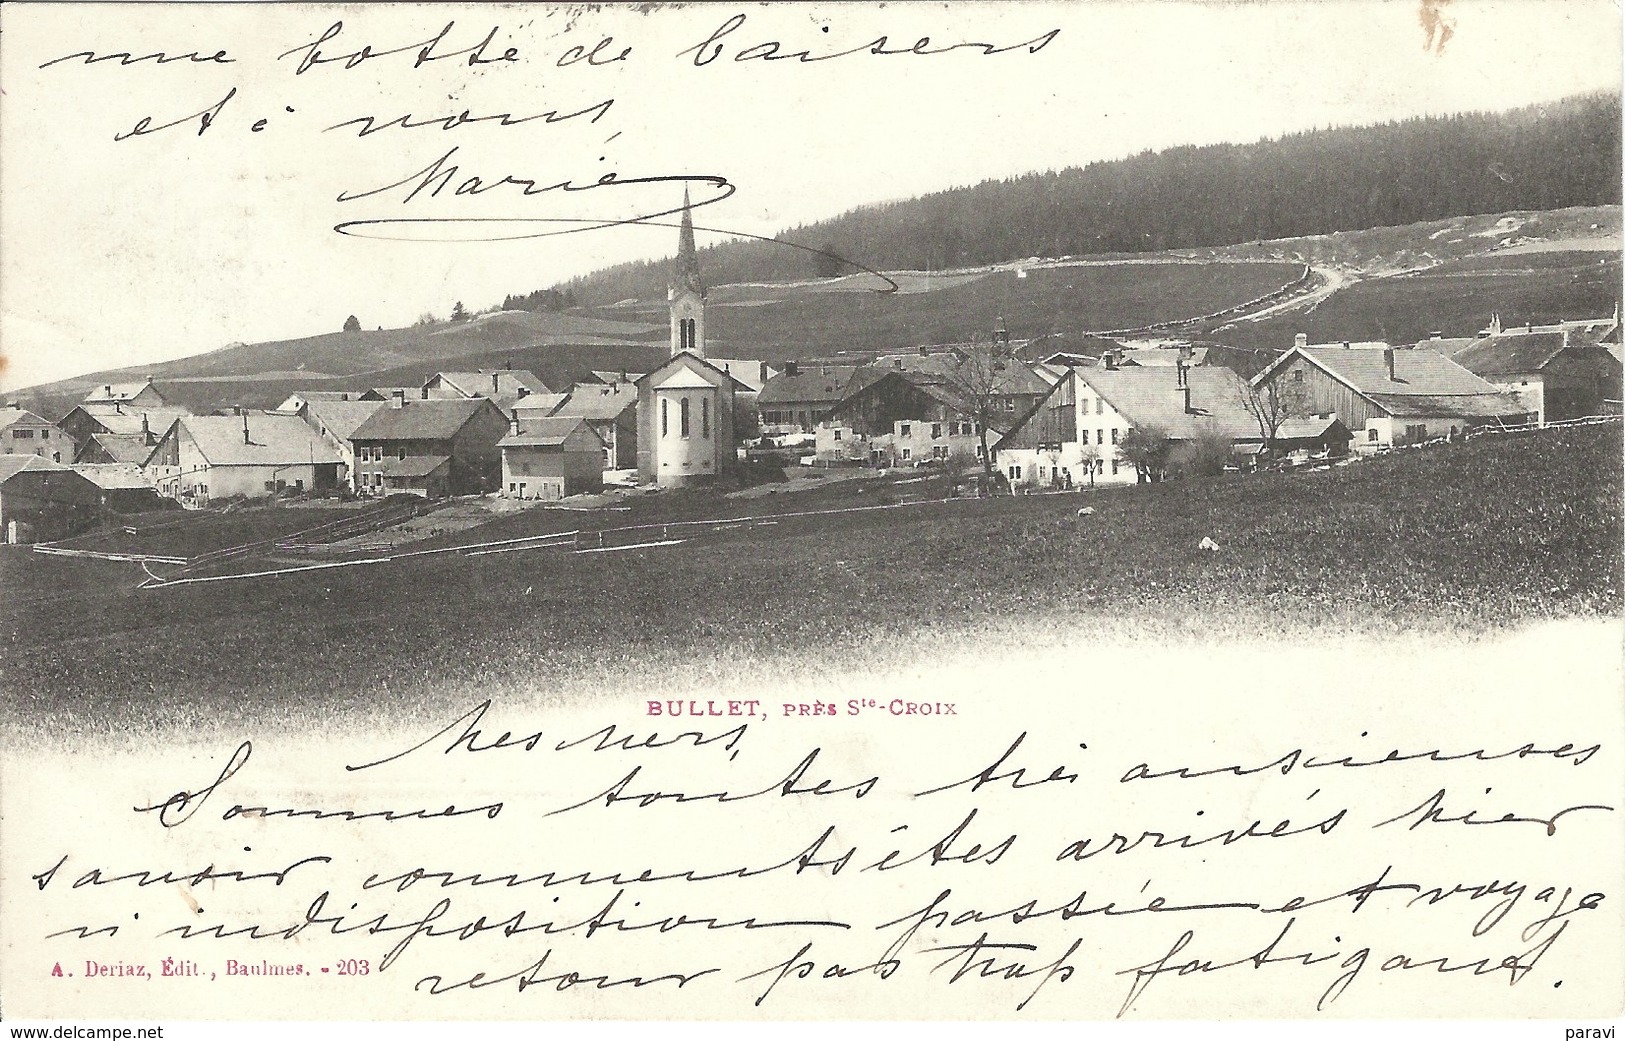 une botte de baisers
et à vous,
Marie
BULLET, PRÈS Ste-CROIX
Mes chers,
Sommes toutes très anxieuses
savoir comment êtes arrivés hier
si indisposition passée et voyage
retour pas trop fatigant.
A. Deriaz, Édit., Baulmes. - 203
www.delcampe.net
paravi